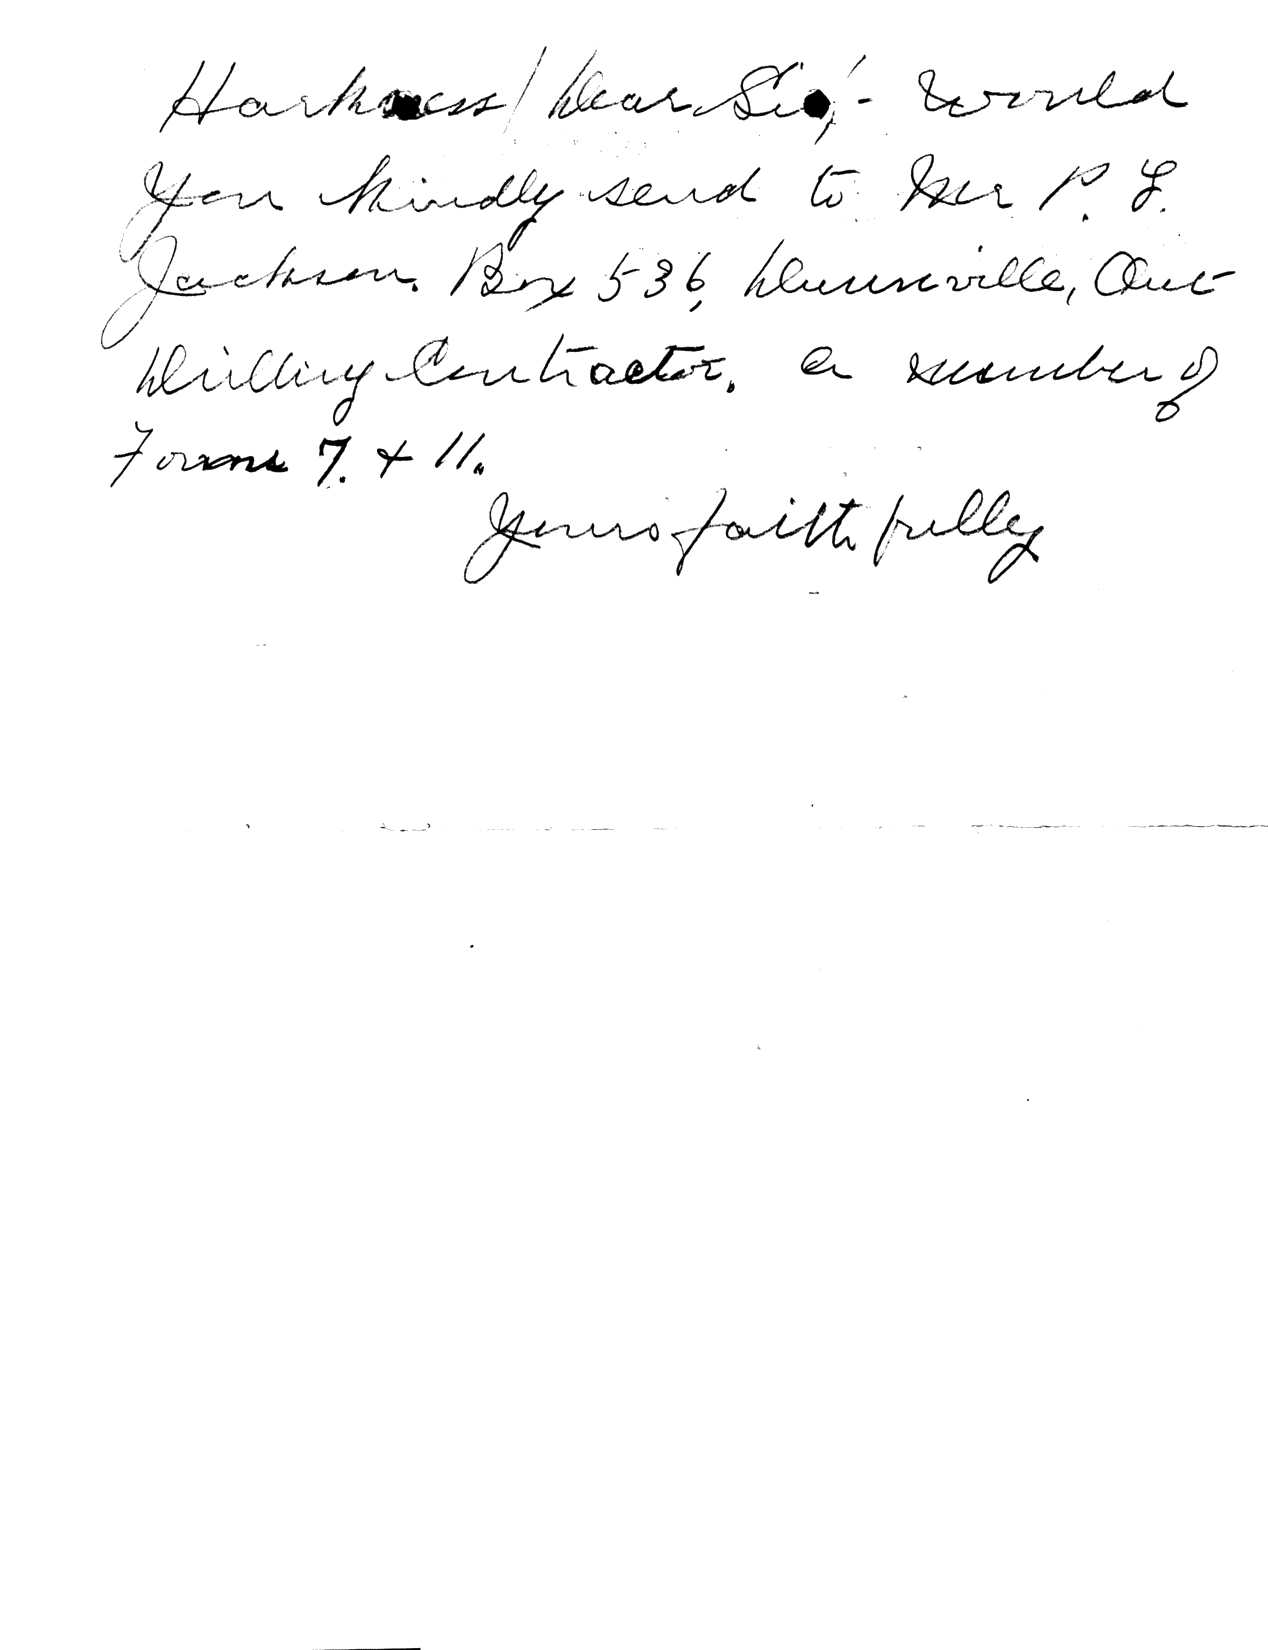 Harkness / Dear Sir,- Would
you kindly send to Mr P. L.
Jackson. Box 536, Dunnville, Ont
Drilling Contractor. a number of
Forms 7. & 11.
Yours faithfully